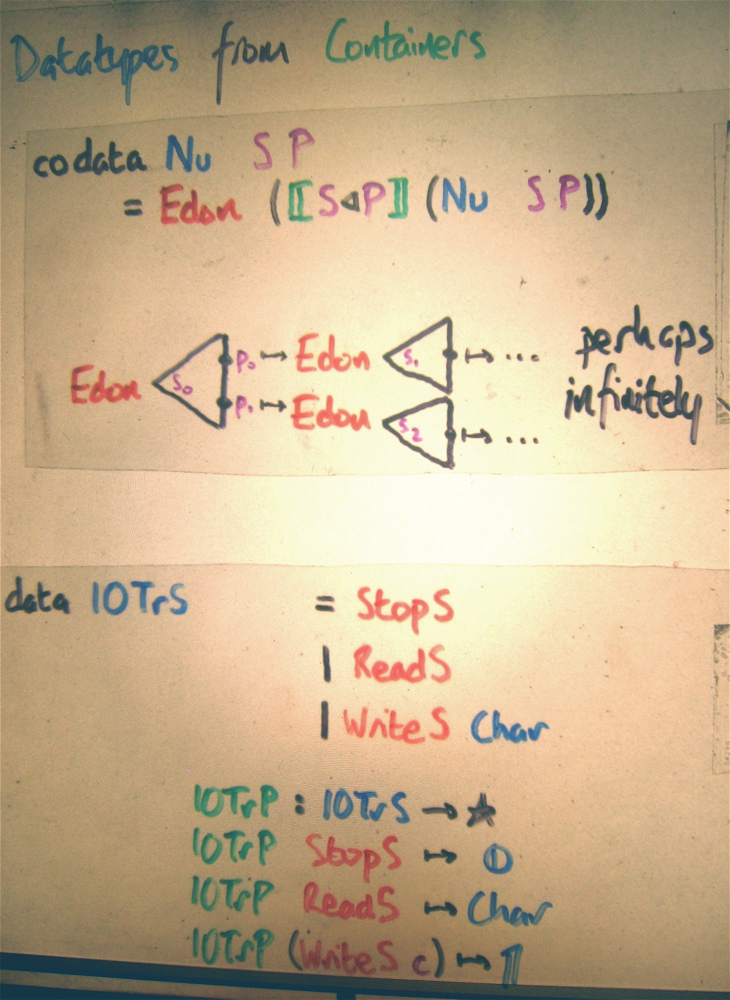 Datatypes from Containers
codata Nu S P
= Edon (⟦S◁P⟧ (Nu S P))
Edon s₀ p₀ ↦ Edon s₁ ↦ ... perhaps
p₁ ↦ Edon s₂ ↦ ... infinitely
data IOTrS = StopS
| ReadS
| WriteS Char
IOTrP : IOTrS → ★
IOTrP StopS ↦ 𝟘
IOTrP ReadS ↦ Char
IOTrP (WriteS c) ↦ 𝟙